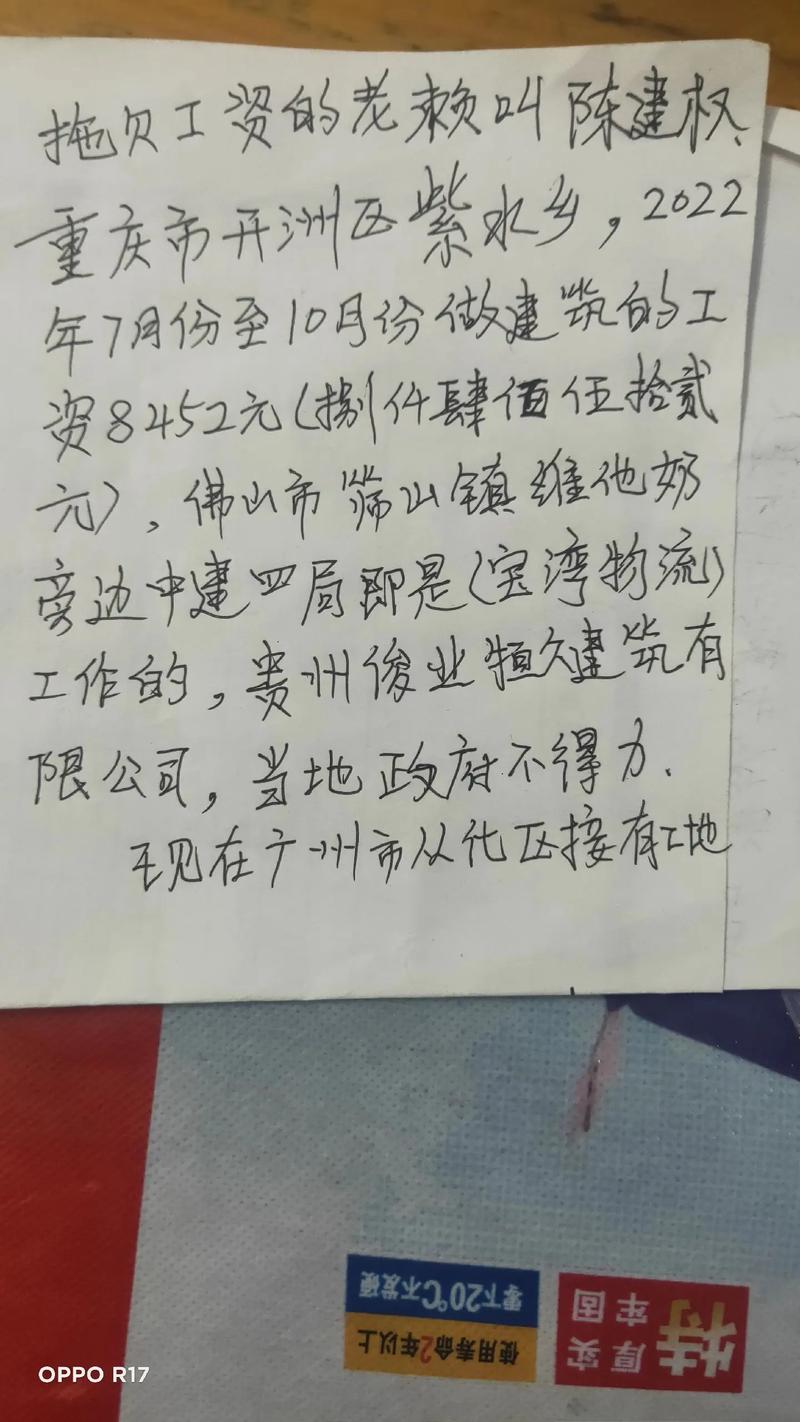 拖欠工资的老赖叫陈建权、
重庆市开洲区紫水乡，2022
年7月份至10月份做建筑的工
资8452元(捌仟肆佰伍拾贰
元)，佛山市筛山镇维他奶
旁边中建四局即是(宝湾物流)
工作的，贵州俊业恒久建筑有
限公司，当地政府不得力.
现在广州市从化区接有工地
零下20℃不发硬
使用寿命2年以上
特
牢固
厚实
OPPO R17